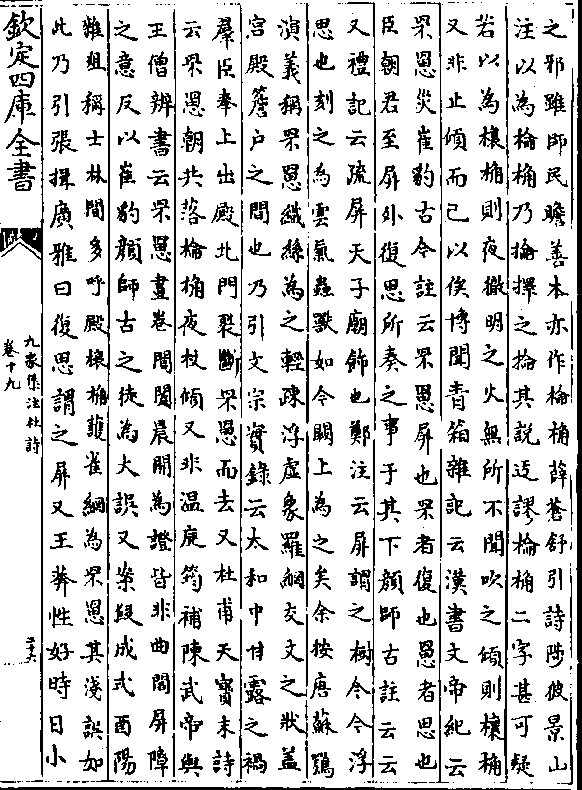 之邪雖師民瞻善本亦作棆桷薛蒼舒引詩陟彼景山
注以為棆桷乃掄擇之掄其說迂謬棆桷二字甚可疑
若以為榱桷則夜徹明之火無所不聞吹之傾則榱桷
又非止傾而已以俟博聞青箱雜記云漢書文帝紀云
罘罳災崔豹古今註云罘罳屏也罘者復也罳者思也
臣朝君至屏外復思所奏之事于其下顔師古註云云
又禮記云疏屏天子廟飾也鄭注云屏謂之樹今今浮
思也刻之為雲氣蟲獸如今闕上為之矣余按唐蘇鶚
演義稱罘罳織絲為之輕疎浮虚象羅網交文之狀蓋
宮殿簷户之間也乃引文宗實錄云太和中甘露之禍
羣臣奉上出殿北門裂斷罘罳而去又杜甫天寶末詩
云罘罳朝共落棆桷夜杖傾又非温庭筠補陳武帝與
王僧辨書云罘罳晝卷閶闔晨開為證皆非曲閣屏障
之意反以崔豹顔師古之徒為大誤又柴段成式酉陽
雜俎稱士林間多呼殿榱桷護雀網為罘罳其淺誤如
此乃引張揖廣雅曰復思謂之屏又王莽性好時日小
欽定四庫全書
九家集注杜詩
卷十九
二十六